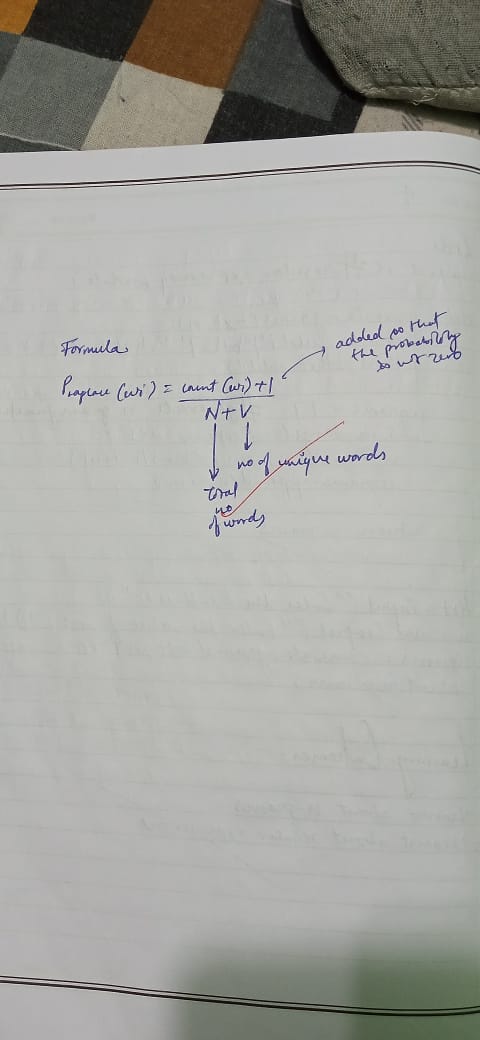 Formula
P Laplace (wi) = count (wi) + 1
N + V
added so that
the probability
is not zero
no of unique words
total
no
of words